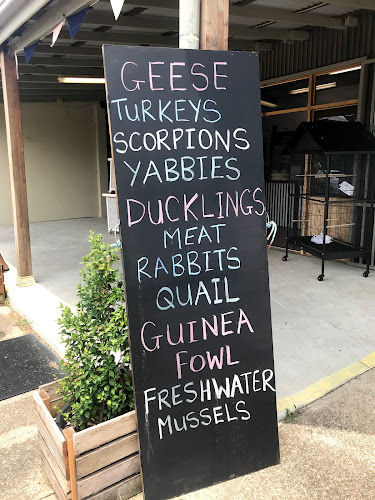 GEESE
TURKEYS
SCORPIONS
YABBIES
DUCKLINGS
MEAT
RABBITS
QUAIL
GUINEA
FOWL
FRESHWATER
MUSSELS